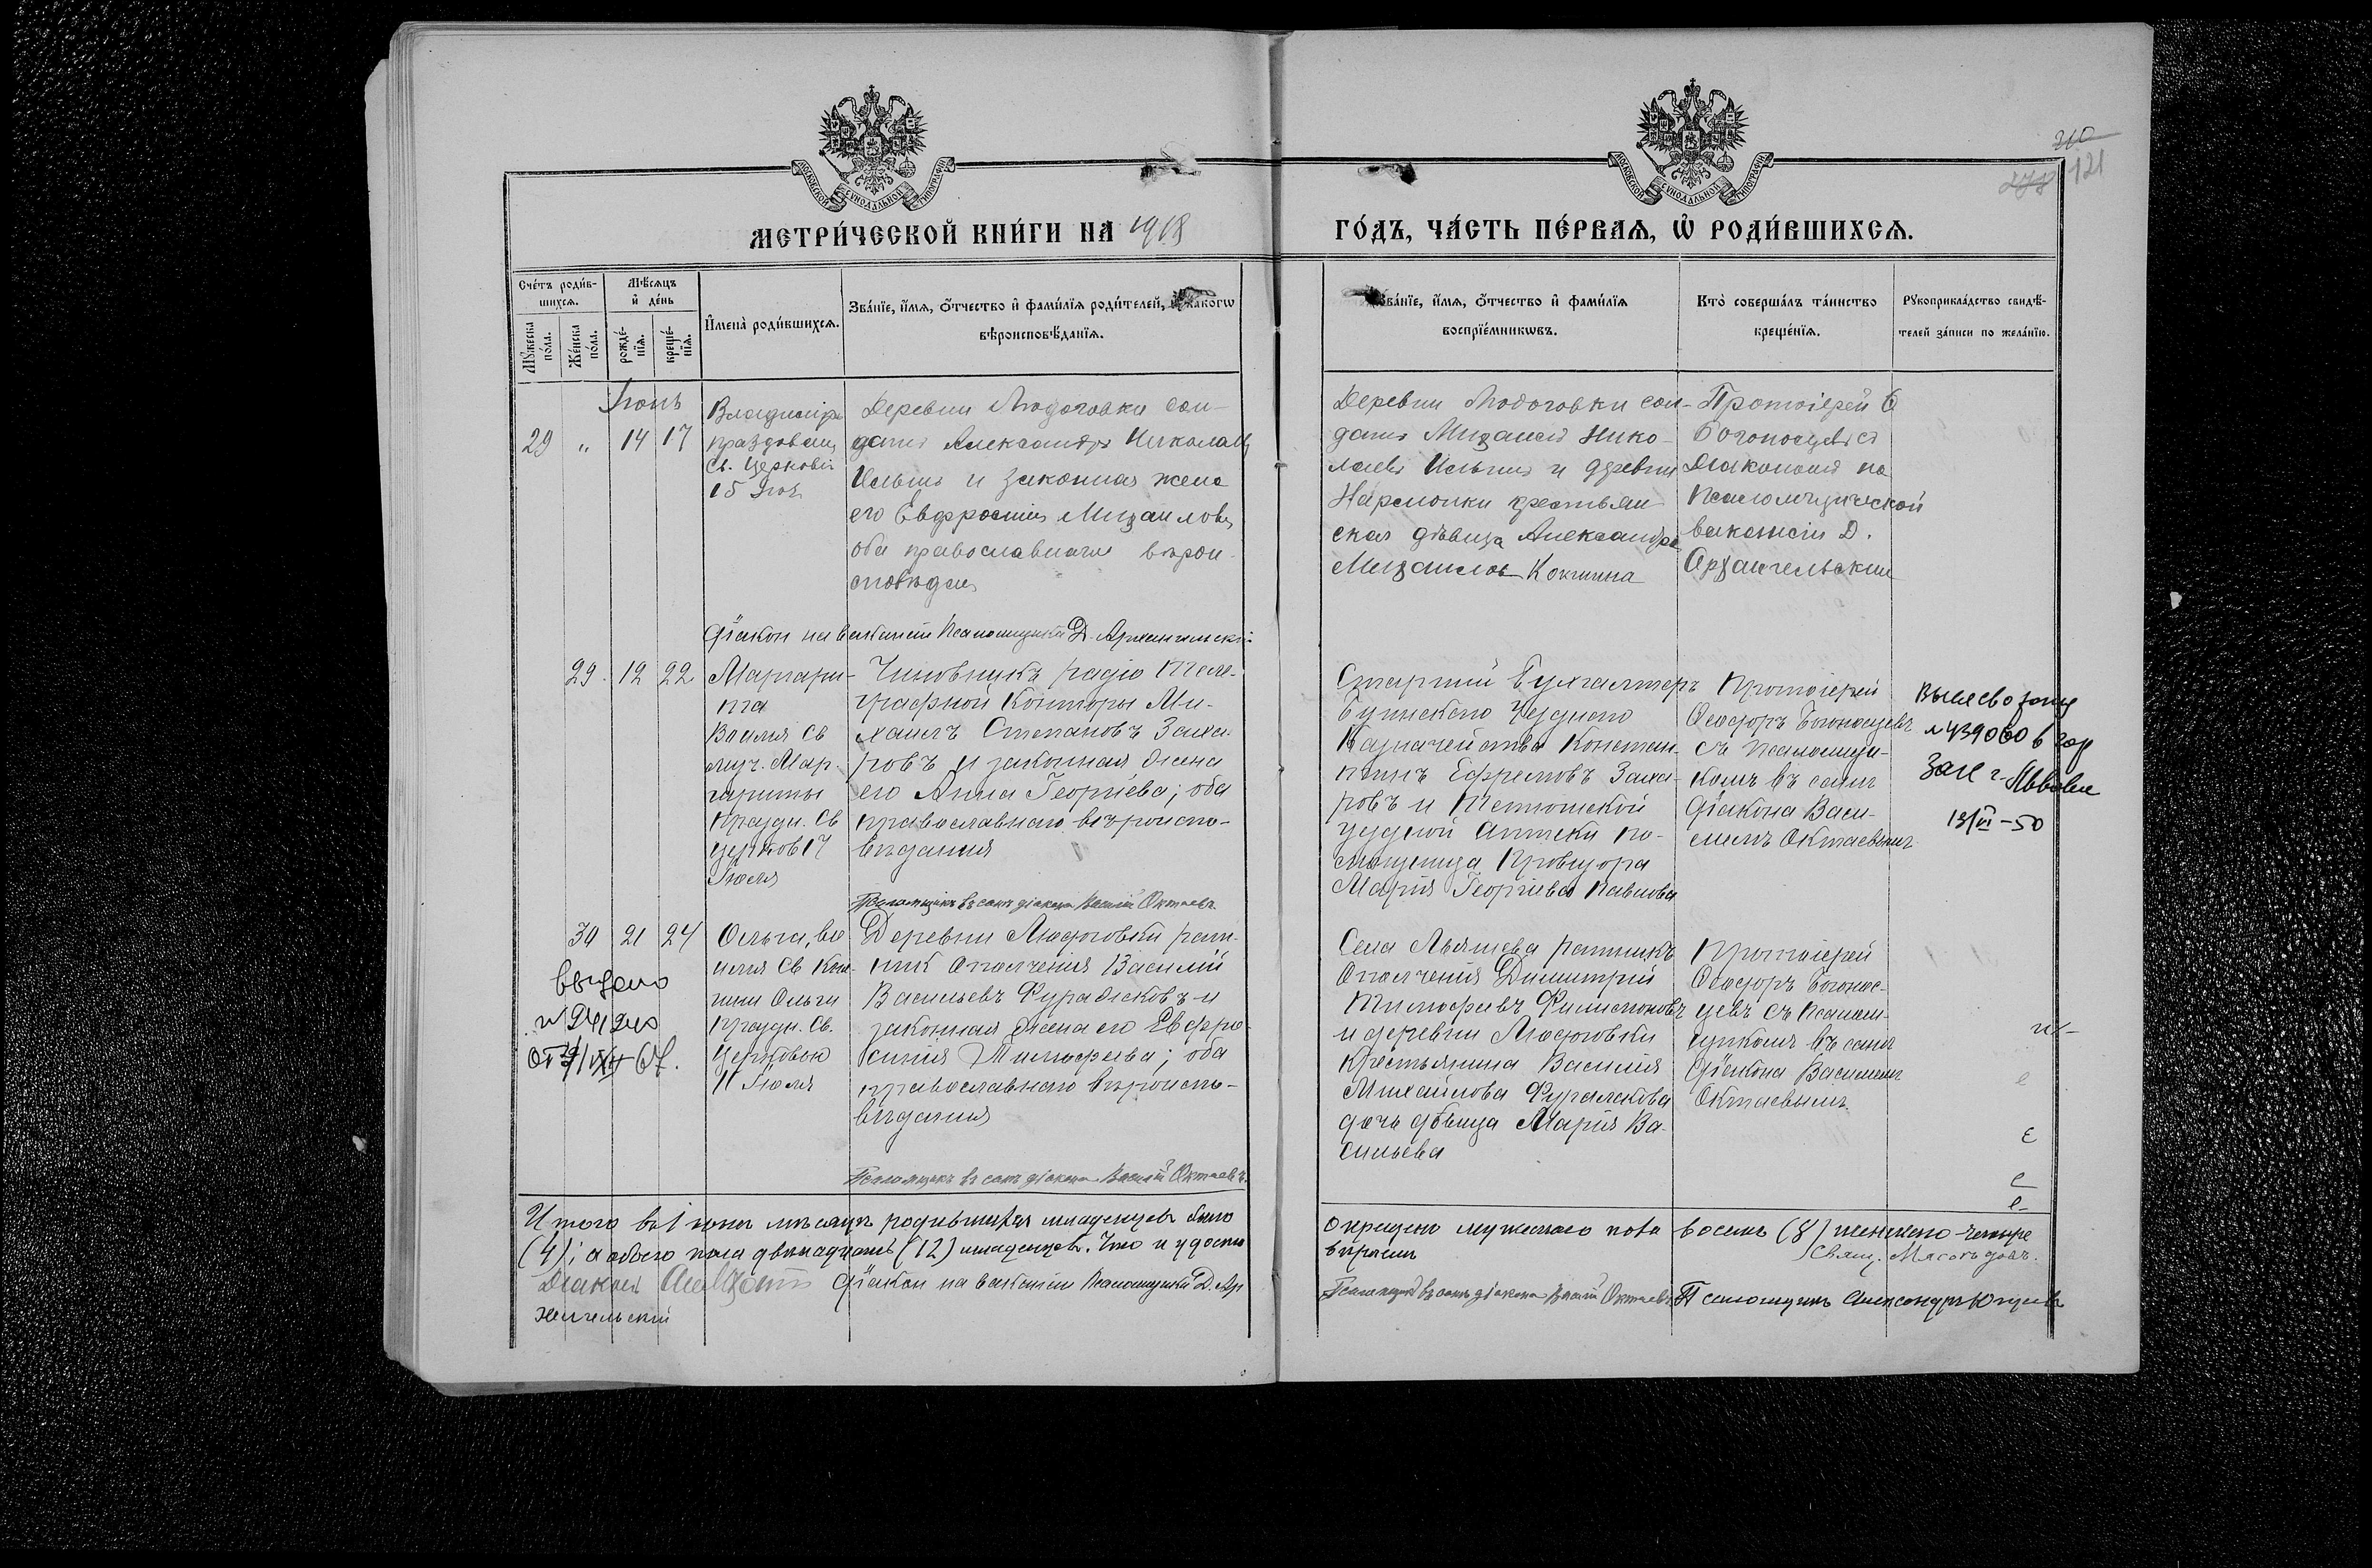 210
278 121
МОСКОВСКОЙ СѴНОДАЛЬНОЙ ТИПОГРАФІИ
МОСКОВСКОЙ СѴНОДАЛЬНОЙ ТИПОГРАФІИ
МЕТРИ́ЧЕСКОЙ КНИ́ГИ НА 1918
ГО́ДЪ, ЧА́СТЬ ПЕ́РВАѦ, Ѡ҆ РОДИ́ВШИХСѦ.
Сче́тъ роди́в-
шихсѧ.
Мꙋ́жеска по́ла.
Же́нска по́ла.
Мѣ́сѧцъ и҆ де́нь
рожде́-
нїѧ.
креще́-
нїѧ.
И҆мена̀ роди́вшихсѧ.
Зва́нїе, и҆́мѧ, ѻ҆́тчество и҆ фами́лїѧ роди́телей, и҆ како́гѡ
вѣроисповѣ́данїѧ.
Зва́нїе, и҆́мѧ, ѻ҆́тчество и҆ фами́лїѧ
воспрїе́мникѡвъ.
Кто̀ соверша́лъ та́инство
креще́нїѧ.
Рꙋкоприкла́дство свидѣ́-
телей за́писи по жела́нїю.
Іюнь
29 „ 14 17
Владиміръ
празднован
Св. Церковію
15 Іюл
Деревни Людоговки сол-
датъ Александръ Николаев
Ильинъ и законная жена
его Евфросинія Михаилова
оба православнаго вѣрои-
сповѣдан
Деревни Людоговки сол-
датъ Михаилъ Нико-
лаевъ Ильинъ и деревни
Нармонки крестьян-
ская дѣвица Александра
Михаилов Кокшина
Протоіерей Ѳ
Богоносцевъ съ
Діакономъ на
Псаломщической
вакансіи Д.
Архангельскимъ
Діакон на вакансіи Псаломщика Д. Архангельскій
29. 12 22
Маргари-
та
Во имя св
муч. Мар-
гариты
праздн. св
церков 17
Іюля
Чиновникъ радіо теле-
графной конторы Ми-
хаилъ Степановъ Заха-
ровъ и законная жена
его Анна Георгіева; оба
православнаго вѣроиспо-
вѣданія
Старшій Бухгалтеръ
Буинскаго Уѣзднаго
Казначейства Констан-
тинъ Ефремовъ Заха-
ровъ и Тетюшской
уѣздной аптеки по-
мощница провизора
Марія Георгіева Павлова
Протоіерей
Ѳеодоръ Богоносцевъ
съ псаломщи-
комъ въ санѣ
діакона Васи-
ліемъ Октаевымъ
N 439060 в гор
Загс г. Львова
13/VI-50
Псаломщикъ въ санѣ діакона Василій Октаевъ.
30 21 24
Ольга, во
имя св Кня-
гини Ольги
праздн. Св.
Церковью
11 Іюля
Деревни Людоговки рат-
ник ополченія Василій
Васильевъ Фуражковъ и
законная жена его Евфро-
синія Тимофеева; оба
православнаго вѣроиспо-
вѣданія
Села Льяшева ратникъ
ополченія Димитрій
Тимофеевъ Филимоновъ
и деревни Людоговки
крестьянина Василія
Михайлова Фуражкова
дочь дѣвица Марія Ва-
сильева
Протоіерей
Ѳеодоръ Богонос-
цевъ съ псалом-
щикомъ въ санѣ
діакона Василіемъ
Октаевымъ
выдано
Псаломщикъ въ санѣ діакона Василій Октаевъ.
Итого въ Іюнѣ мѣсяцѣ родившихся младенцевъ было
окрещено мужескаго пола восемь (8) женскаго четыре
(4); а обоего пола двѣнадцать (12) младенцев. Что и удосто
вѣряемъ Свящ.
Діаконъ Діакон на вакансіи Псаломщика Д. Ар
хангельскій
Псаломщикъ въ санѣ діакона Василій Октаевъ Псаломщикъ Александръ